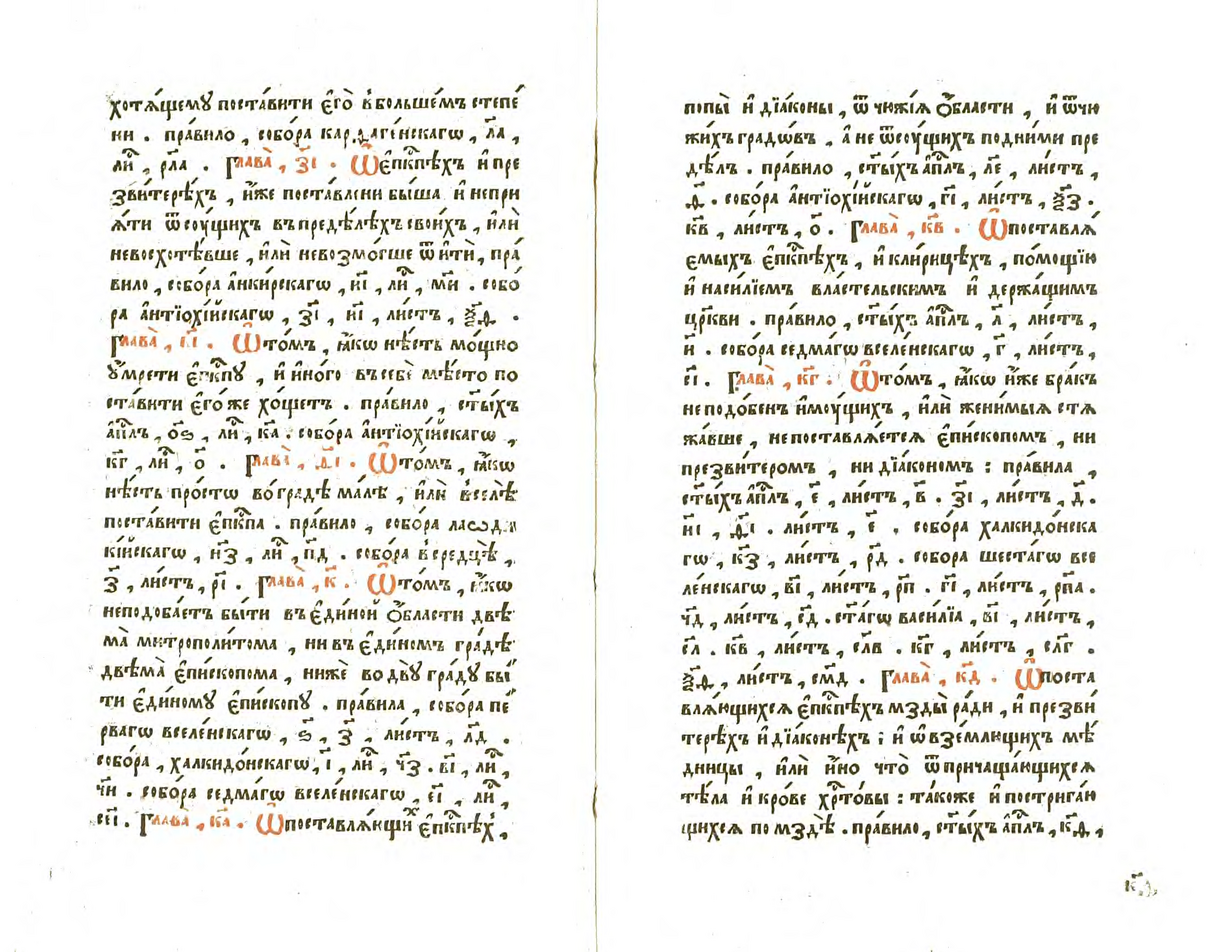 хотѧ́щемꙋ поста́вити є҆го̀ в҆ бо́льшемъ степе́
ни . пра́вило , собо́ра карѳаге́нскагѡ , ла ,
ли҇ , рла . Глава̀ , з҃і . Ѡ҆ є҆пⷭ҇кпѣхъ и҆ пре
зви́терѣхъ , и҆̀же поставлени бы́ша и҆ непри
ѧ́ти ѿ сꙋ́щихъ въ предѣ́лѣхъ свои́хъ , и҆лѝ
невосхотѣ́вше , и҆лѝ невозмо́гше ѿитѝ , пра́
вило , собо́ра а҆нки́рскагѡ , и҃і , ли҇ , м҃и . собо́
ра а҆нтїохі́йскагѡ , з҃і , и҃і , ли́стъ , ѯ҃ѳ .
Глава̀ , и҃і . Ѡ҆ то́мъ , ꙗ҆́кѡ нѣ́сть мо́щно
ᲂу҆мре́ти є҆пⷭ҇кпꙋ , и҆ и҆но́го въ себѐ мѣ́сто по
ста́вити є҆го́же хо́щетъ . пра́вило , ст҃ы́хъ
а҆пⷭ҇лъ , о҃ѕ , ли҇ , к҃а . собо́ра а҆нтїохі́йскагѡ ,
к҃г , ли҇ , о҃ . Глава̀ , ѳ҃і . Ѡ҆ то́мъ , ꙗ҆́кѡ
нѣ́сть про́стѡ во гра́дѣ ма́лѣ , и҆лѝ в҆ селѣ̀
поста́вити є҆пⷭ҇кпа . пра́вило , собо́ра лаѡді
кі́йскагѡ , н҃з , ли҇ , п҃д . собо́ра в҆ середцѣ̀ ,
з҃ , ли́стъ , р҃і . Глава̀ , к҃ . Ѡ҆ то́мъ , ꙗ҆́кѡ
неподоба́етъ бы́ти въ є҆ди́ной о҆́бласти двѣ
ма̀ митрополи́тома , ни въ є҆ди́номъ гра́дѣ
двѣма̀ є҆пи́скопома , нижѐ во двꙋ̀ гра́дꙋ бы́
ти є҆ди́номꙋ є҆пи́скопꙋ . пра́вила , собо́ра пе́
рвагѡ вселе́нскагѡ , ѕ҃ , з҃ , ли́стъ , л҃д .
собо́ра , халкидо́нскагѡ , і҃ , ли҇ , ч҃з . в҃і , ли҇ ,
ч҃и . собо́ра седма́гѡ вселе́нскагѡ , є҃і , ли҇ ,
сє҃і . Глава̀ , к҃а . Ѡ҆ поставлѧ́ющи є҆пⷭ҇кпѣх ,
попы̀ и҆ дїа́коны , ѿ чюжі́ѧ о҆́бласти , и҆ ѿ чю
жи́хъ градѡ́въ , а҆ не ѿ сꙋ́щихъ под ни́ми пре
дѣ́лъ . пра́вило , ст҃ы́хъ а҆пⷭ҇лъ , л҃є , ли́стъ ,
ѳ҃ . собо́ра а҆нтїохі́йскагѡ , г҃і , ли́стъ , ѯ҃з .
к҃в , ли́стъ , о҃ . Глава̀ , к҃в . Ѡ҆ поставлѧ́
емыхъ є҆пⷭ҇кпѣхъ , и҆ кли́рицѣхъ , по́мощїю
и҆ наси́лїемъ вла́стельскимъ и҆ держа́щимъ
цр҃кви . пра́вило , ст҃ы́хъ а҆пⷭ҇лъ , л҃ , ли́стъ ,
и҃ . собо́ра седма́гѡ вселе́нскагѡ , г҃ , ли́стъ ,
є҃і . Глава̀ , к҃г . Ѡ҆ то́мъ , ꙗ҆́кѡ и҆̀же бра́къ
неподо́бенъ и҆мꙋ́щихъ , и҆лѝ жени́мыѧ стѧ
жа́вше , непоставлѧ́етсѧ є҆пи́скопомъ , ни
презви́теромъ , ни дїа́кономъ : пра́вила ,
ст҃ы́хъ а҆пⷭ҇лъ , є҃ , ли́стъ , в҃ . з҃і , ли́стъ , д҃ .
и҃і , ѳ҃і . ли́стъ , є҃ . собо́ра халкидо́нска
гѡ , к҃з , ли́стъ , р҃д . собо́ра шеста́гѡ все
ле́нскагѡ , в҃і , ли́стъ , р҃п . г҃і , ли́стъ , рп҃а .
ч҃д , ли́стъ , с҃д . ст҃а́гѡ васи́лїа , в҃і , ли́стъ ,
с҃л . к҃в , ли́стъ , сл҃в . к҃г , ли́стъ , сл҃г .
ѯ҃ѳ , ли́стъ , см҃д . Глава̀ , к҃д . Ѡ҆ поста
влѧ́ющихсѧ є҆пⷭ҇кпѣхъ мзды̀ ра́ди , и҆ презви́
терѣхъ и҆ дїа́конѣхъ ; и҆ ѡ҆ вземлющихъ мѣ́
дницы , и҆лѝ и҆́но что̀ ѿ причаща́ющихсѧ
тѣ́ла и҆ кро́ве хрⷭ҇то́вы : та́коже и҆ пострига́ю
щихсѧ по мздѣ̀ . пра́вило , ст҃ы́хъ а҆пⷭ҇лъ , к҃ѳ ,